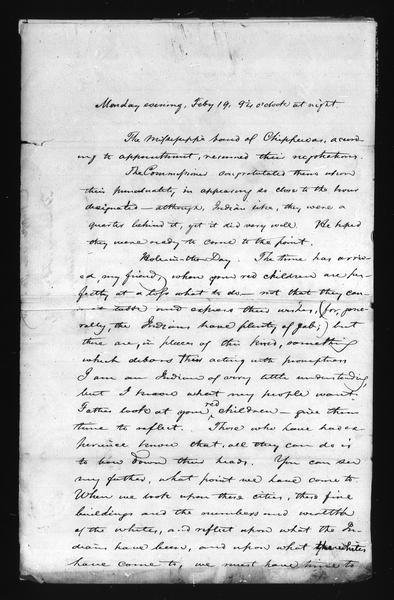 Monday evening, Feby 19, 9¼ o'clock at night.
The Mississippi band of Chippewas, accord-
ing to appointment, resumed their negotiations.
The Commissioner congratulated them upon
their punctuality, in appearing so close to the hour
designated — although, Indian like, they were a
quarter behind it, yet it did very well. He hoped
they were ready to come to the point.
Hole-in-the-Day. The time has arriv-
ed my friend, when your red children are per-
fectly at a loss what to do — not that they can-
not talk and express their wishes, (for, gene-
rally, the Indians have plenty of gab;) but
there are, in places of this kind, something
which debars their acting with promptness.
I am an Indian of very little understanding,
but I know what my people want.
Father look at your red children — give them
time to reflect. Those who have had ex-
perience know that, all they can do is
to bow down their heads. You can see
my father, what point we have come to.
When we look upon these cities, these fine
buildings and the numbers and wealth
of the whites, and reflect upon what the In-
dians have been, and upon what the whites
have come to, we must have time to